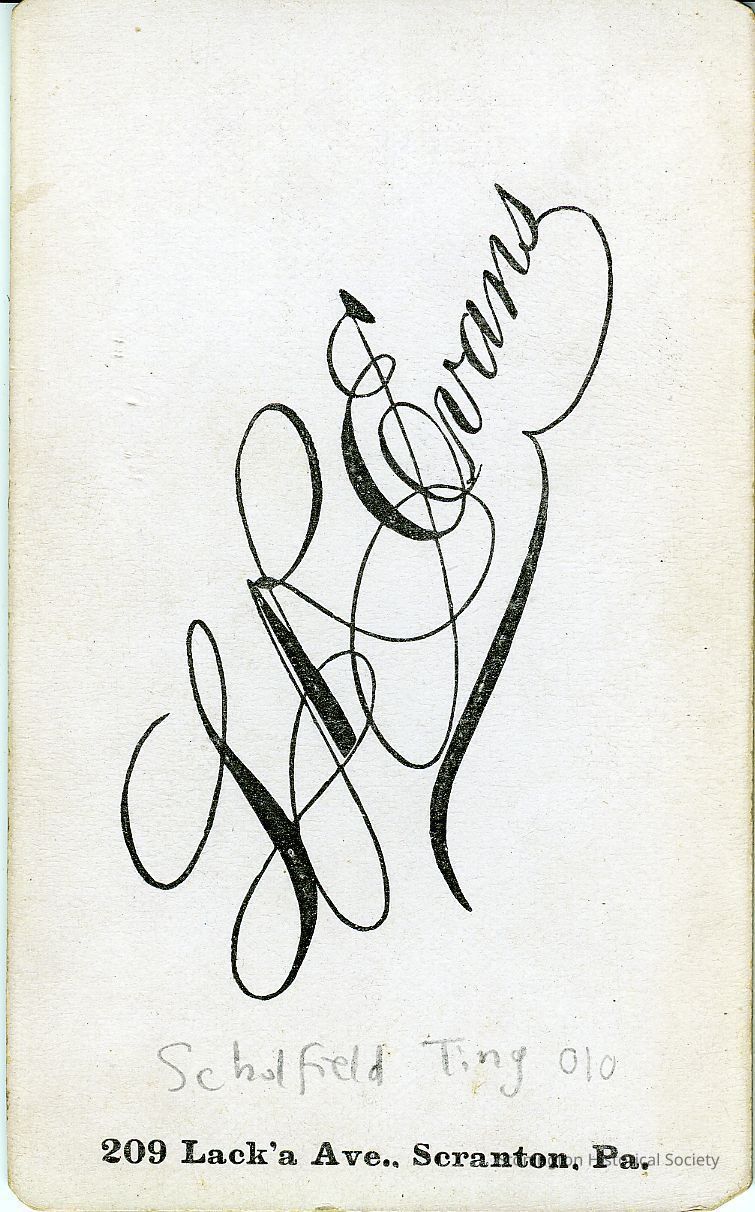 L R Evans
Scholfield Ting 010
209 Lack'a Ave., Scranton, Pa.
Historical Society